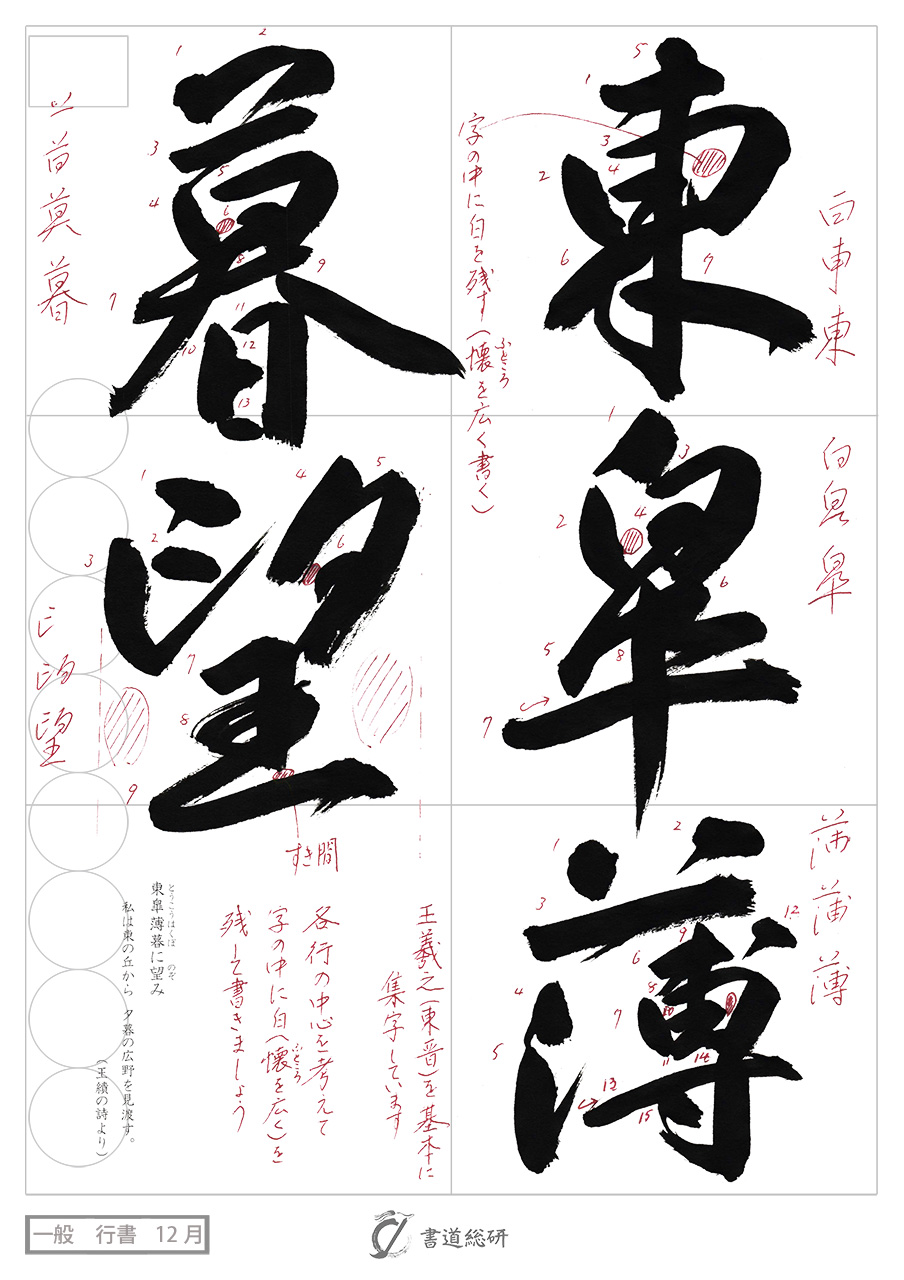 東皐薄
暮望
白 車 東
白 皂 皐
蒲 蒲 薄
字の中に白を残す(懐を広く書く)
ふところ
苩 莫 暮
望
すき間
王羲之(東晋)を基本に
集字しています
各行の中心を考えて
字の中に白(懐を広く)を
ふところ
残して書きましょう
とうこうはくぼ のぞ
東皐薄暮に望み
私は東の丘から 夕暮の広野を見渡す。
(王績の詩より)
一般 行書 12月
書道総研